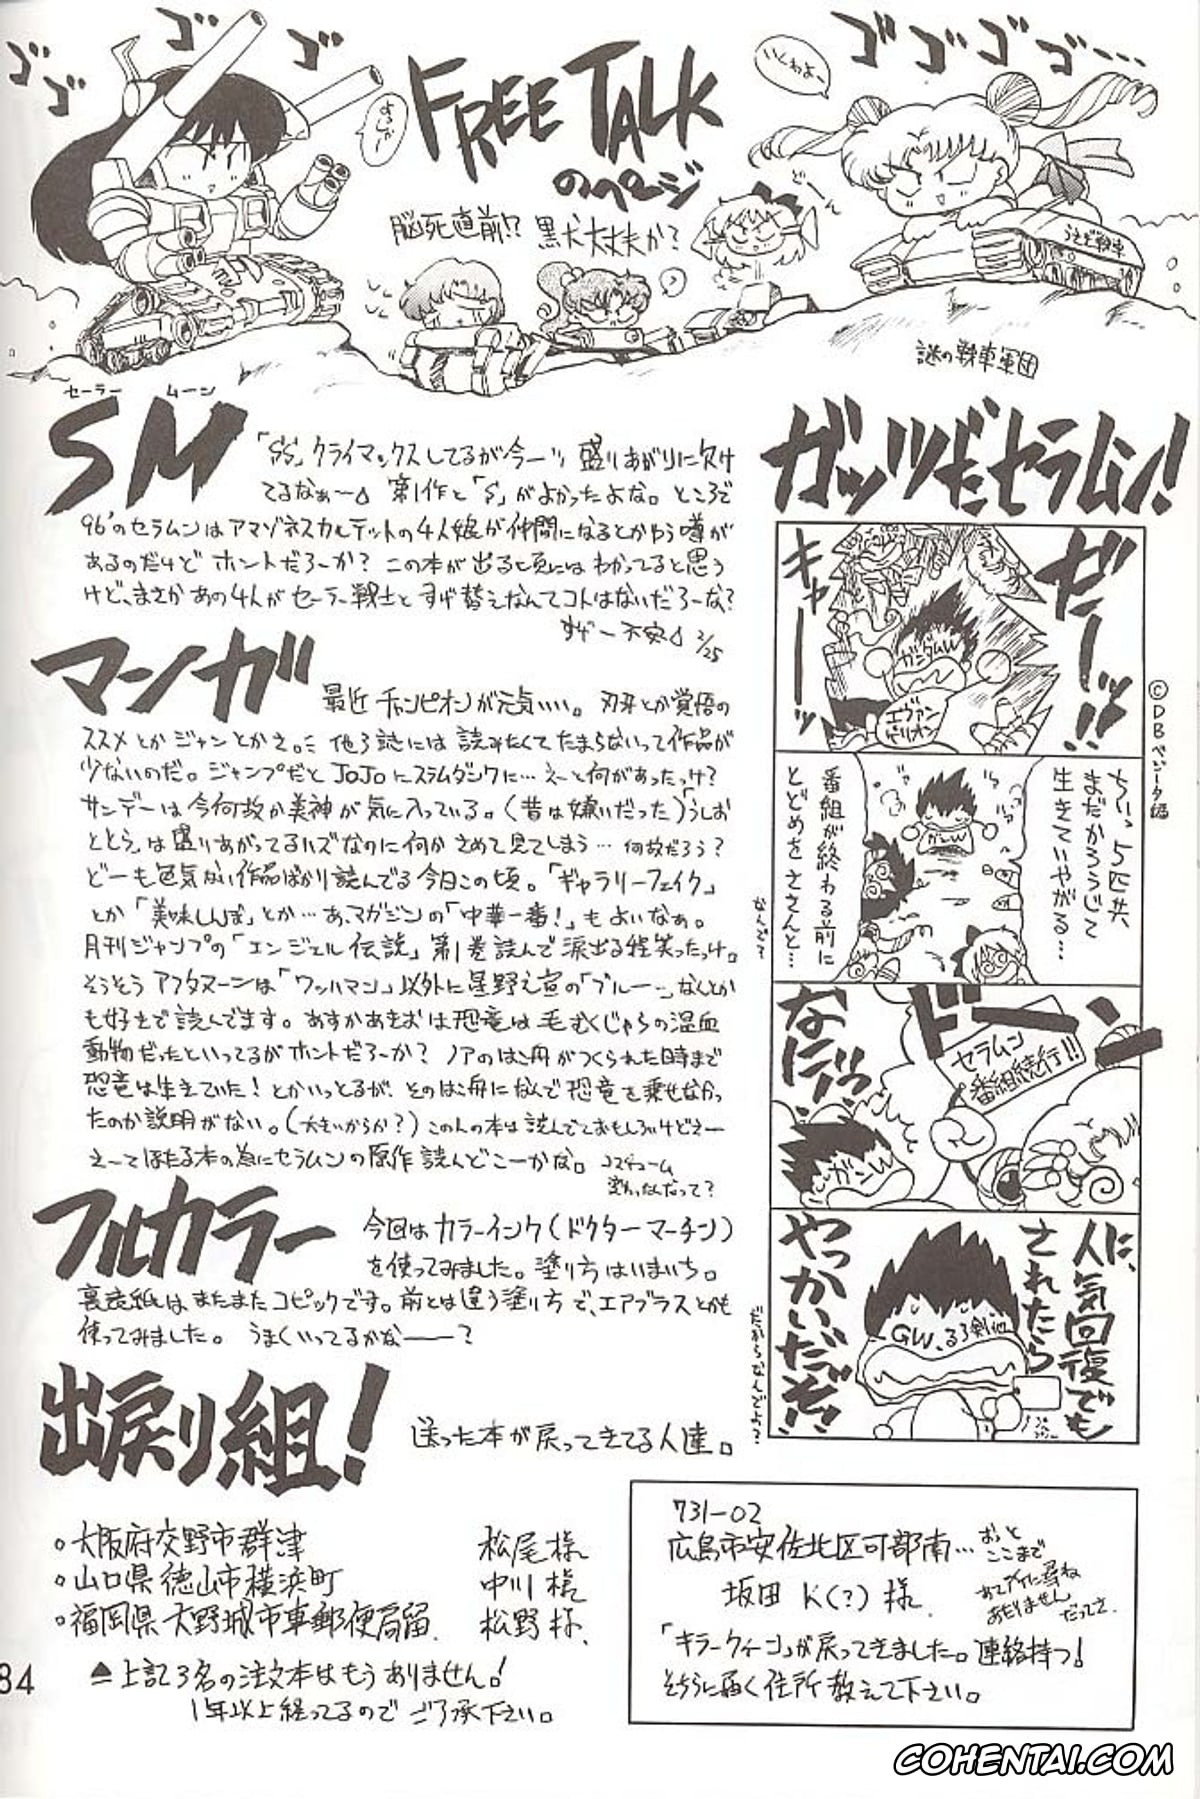 ゴゴゴゴ
よっしゃー
FREE TALK
のページ
いくわよー
ゴゴゴゴー…
脳死直前!? 黒犬大丈夫か?
どーん
うさぎ戦車
謎の戦車軍団
セーラー ムーン
SM
「SS」クライマックスしてるが今一ツ盛りあがりに欠け
てるなぁ〜。第1作と「S」がよかったよな。ところで
96'のセラムンはアマゾネスカルテットの4人娘が仲間になるとかゆう噂が
あるのだけど ホントだろーか? この本が出る頃にはわかってると思う
けど、まさかあの4人がセーラー戦士とすげ替えなんてコトはないだろーな?
すげー不安 2/25
マンガ
最近チャンピオンが元気いい。刃牙とか覚悟の
ススメとかジャンとかさ。… 他3誌には読みたくてたまらないって作品が
少ないのだ。ジャンプだとJOJOにスラムダンクに…えーと何があったっけ?
サンデーは今何故か美神が気に入っている。(昔は嫌いだった)「うしお
ととら」は盛りあがってるハズなのに何かさめて見てしまう…何故だろう?
どーも色気ない作品ばかり読んでる今日この頃。「ギャラリーフェイク」
とか「美味しんぼ」とか…あ、マガジンの「中華一番!」もよいなぁ。
月刊ジャンプの「エンジェル伝説」第1巻読んで涙出る程笑ったっけ。
そうそうアフタヌーンは「ワッハマン」以外に星野之宣の「ブルー…」なんとか
も好きで読んでます。あすかあきおは恐竜は毛むくじゃらの温血
動物だったといってるがホントだろーか? ノアのはこ舟がつくられた時まで
恐竜は生きていた!とかいっとるが、そのはこ舟になんで恐竜を乗せなかっ
たのか説明がない。(大きいからか?)この人の本は読んでておもしろいけどえー
えーてほたる本の為にセラムンの原作読んどこーかな。コスチューム
変わったんだって?
フルカラー
今回はカラーインク(ドクターマーチン)
を使ってみました。塗り方はいまいち。
裏表紙はまたまたコピックです。前とは違う塗り方で、エアブラスとかも
使ってみました。うまくいってるかなーーー?
出戻り組!
送った本が戻ってきてる人達。
○大阪府交野市群津 松尾様
○山口県徳山市横浜町 中川様
○福岡県大野城市東郵便局留 松野様
▲上記3名の注文本はもうありません!
1年以上経ってるのでご了承下さい。
84
ガッツだセラムン!
だーッ!!
キャーーッ
ガンダムW
エヴァンゲリオン
©DBベジータ編
ちぃっ 5匹共
まだかろうじて
生きていやがる…
ガンW
番組が終わる前に
とどめをささんと…
なんで?
ドーン
セラムン
番組続行!!
なにィッ
ガンW
人に、人気回復でも
されたら
GW、るろ剣他
やっかいだぞ!
だからなんでよ?
731-02
広島市安佐北区可部南…
おっと
ここまで
坂田 K(?)様
「キラークィーン」が戻ってきました。連絡持つ!
そちらに届く住所教えて下さい。
COHENTAI.COM